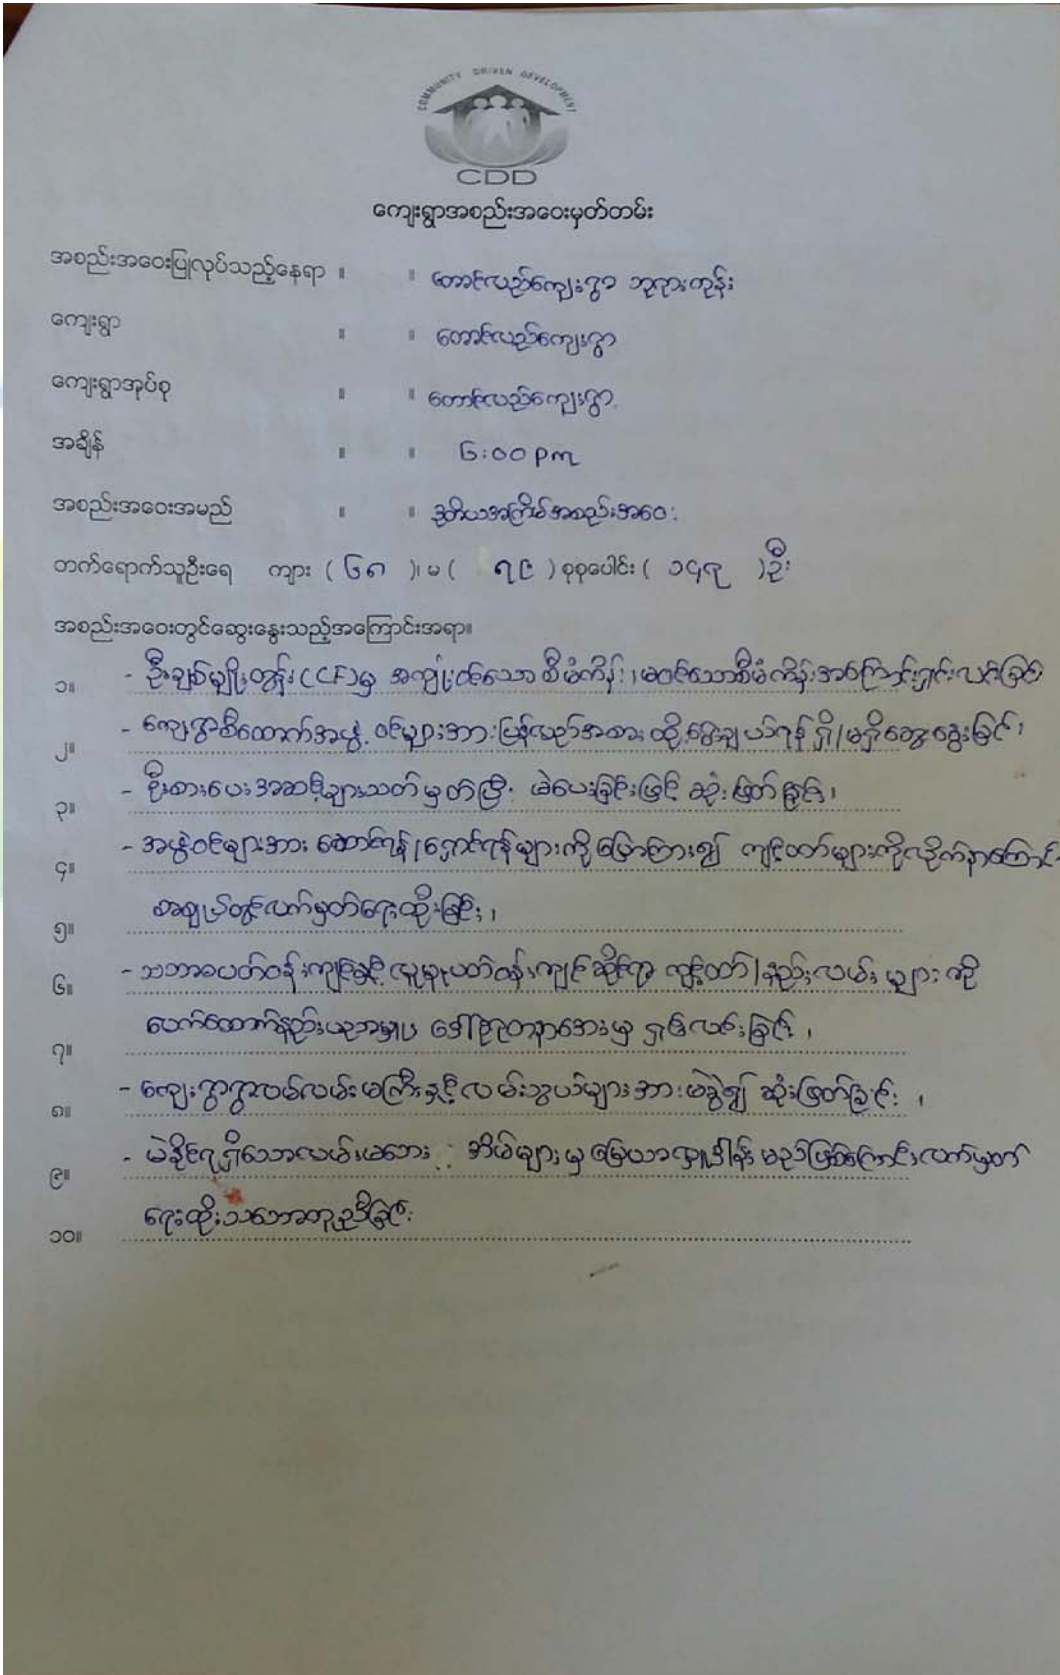 COMMUNITY DRIVEN DEVELOPMENT
CDD
ကျေးရွာအစည်းအဝေးမှတ်တမ်း
အစည်းအဝေးပြုလုပ်သည့်နေရာ ။ ။ တောင်လည်ကျေးရွာ ဘုရားကုန်း
ကျေးရွာ ။ ။ တောင်လည်ကျေးရွာ
ကျေးရွာအုပ်စု ။ ။ တောင်လည်ကျေးရွာ
အချိန် ။ ။ ၆:၀၀ pm
အစည်းအဝေးအမည် ။ ။ ဒုတိယအကြိမ်အစည်းအဝေး
တက်ရောက်သူဦးရေ ကျား ( ၆၈ )၊ မ ( ၇၉ ) စုစုပေါင်း ( ၁၄၇ ) ဦး
အစည်းအဝေးတွင်ဆွေးနွေးသည့်အကြောင်းအရာ။
၁။ - ဦးချစ်မျိုးထွန်း (CCF) မှ အကျုံးဝင်သော စီမံကိန်း၊ မဝင်သောစီမံကိန်းအကြောင်းရှင်းလင်းခြင်း
၂။ - ကျေးရွာစီထောက်အဖွဲ့ဝင်များအား ပြန်လည်အစားထိုးရွေးချယ်ရန် ရှိ/မရှိဆွေးနွေးခြင်း၊
၃။ - ဦးစားပေးအဆင့်များသတ်မှတ်ပြီး မဲပေးခြင်းဖြင့် ဆုံးဖြတ်ခြင်း၊
၄။ - အဖွဲ့ဝင်များအား ဆောင်ရန်/ရှောင်ရန်များကိုပြောကြား၍ ကျင့်ဝတ်များကိုလိုက်နာကြောင်း
၅။ စာချုပ်တွင်လက်မှတ်ရေးထိုးခြင်း၊
၆။ - သဘာဝပတ်ဝန်းကျင်နှင့် လူမှုပတ်ဝန်းကျင်ဆိုင်ရာ ကျင့်ဝတ်/နည်းလမ်းများကို
၇။ ပံ့ပိုးထောက်နည်းပညာမှူး ဒေါ် အေးမှ ရှင်းလင်းခြင်း၊
၈။ - ကျေးရွာရွာလယ်လမ်းမကြီးနှင့်လမ်းသွယ်များအား မဲခွဲ၍ ဆုံးဖြတ်ခြင်း၊
၉။ - မဲနိုင်ရရှိသောလမ်းမဘေး အိမ်များမှ မြေယာလှူဒါန်းမည်ဖြစ်ကြောင်းလက်မှတ်
၁၀။ ရေးထိုးသဘောတူညီခြင်း